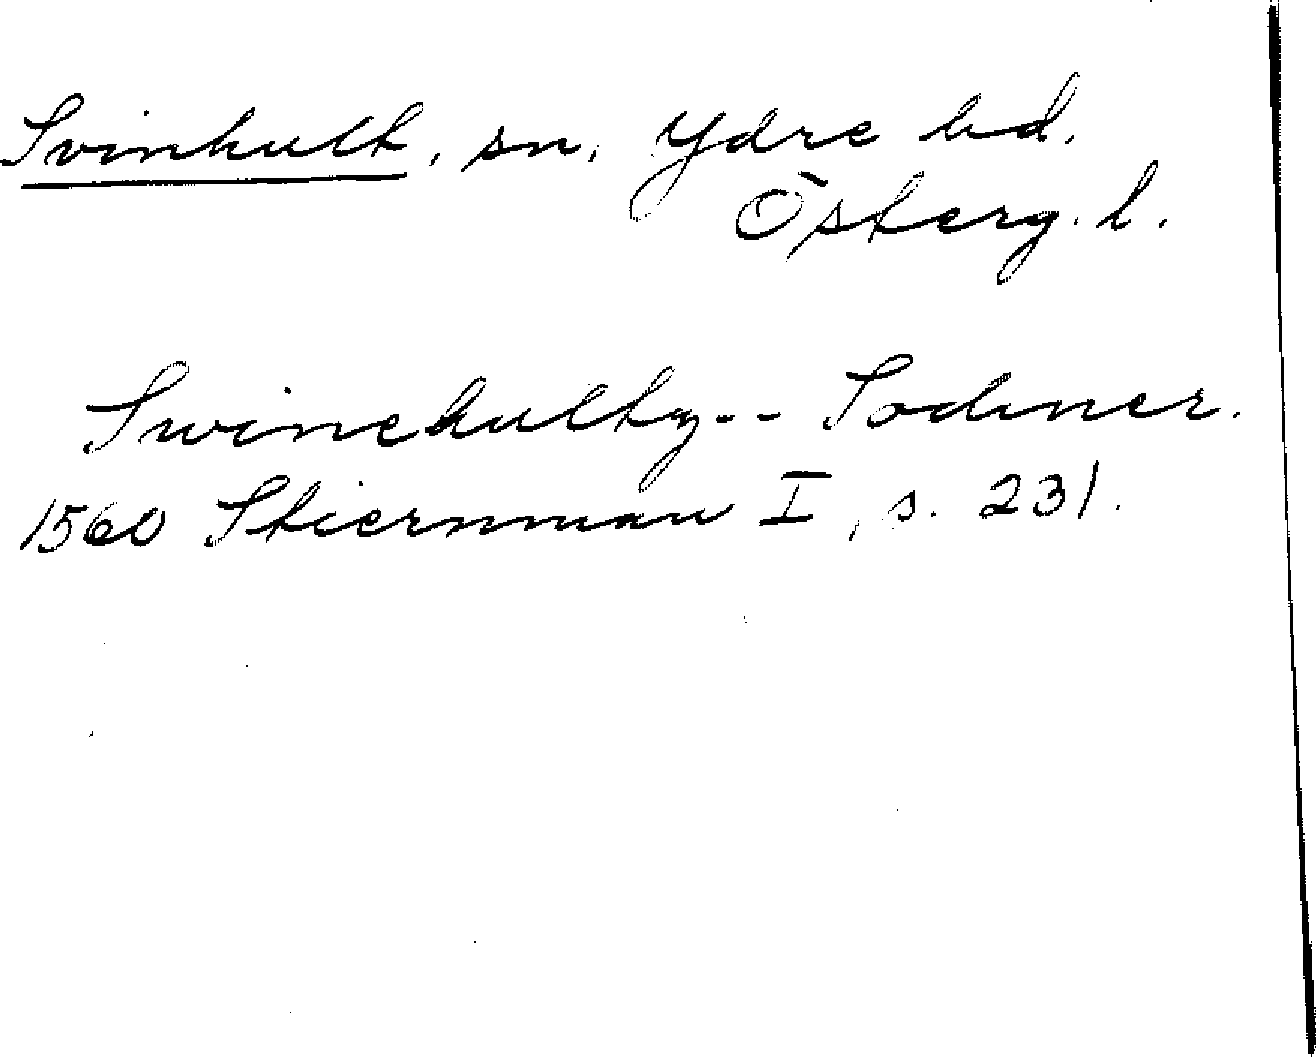 Svinhult, sn, Ydre hd,
Österg. l.
Swinehultz-- Sodiner.
1560 Stiernman I, s. 231.